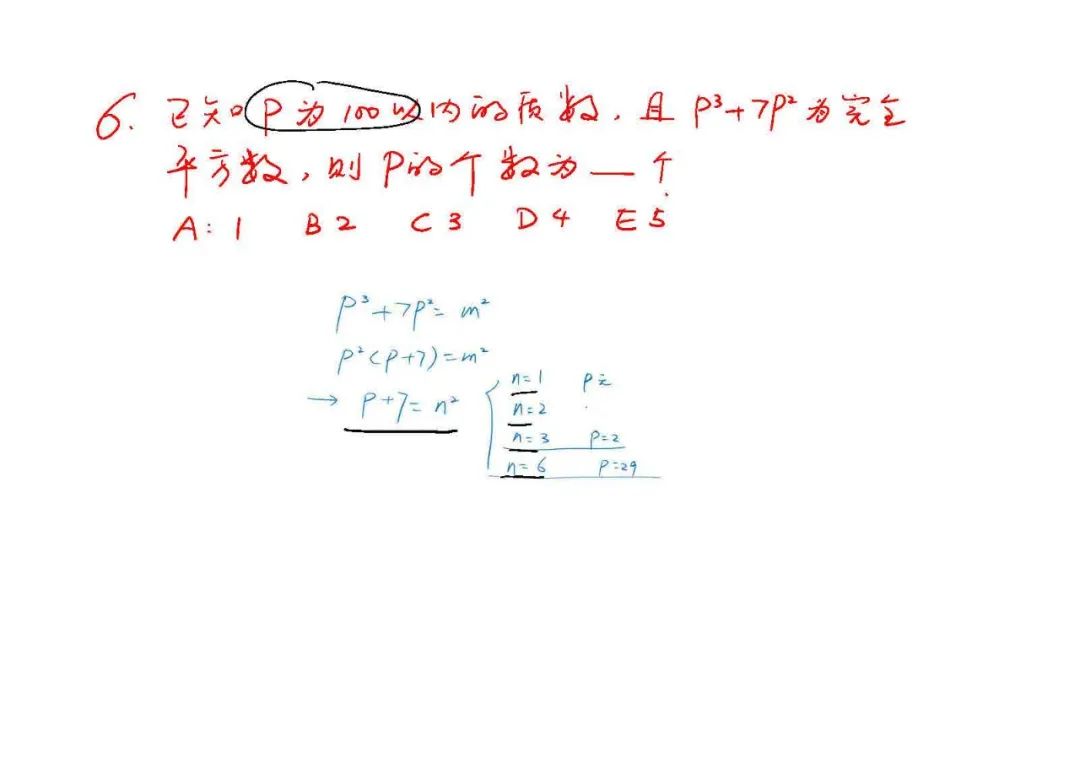 6. 已知P为100以内的质数，且P³+7P²为完全
平方数，则P的个数为__个
A: 1 B 2 C 3 D 4 E 5
P³+7P²=m²
P²(P+7)=m²
→ P+7=n²
n=1 P无
n=2
n=3 P=2
n=6 P=29